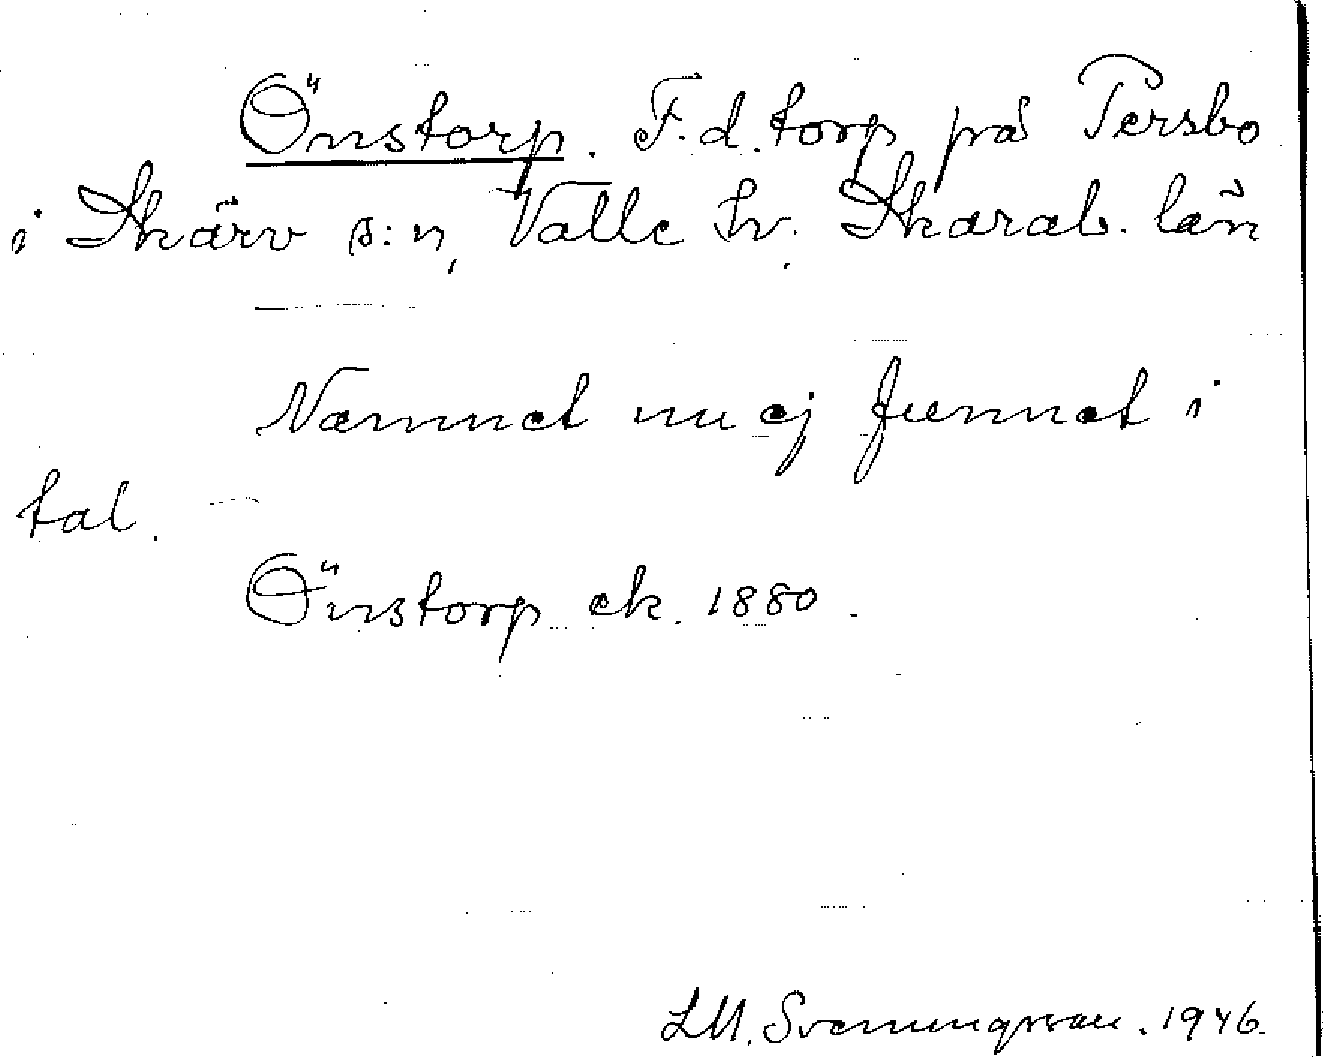 Önstorp. F.d. torp på Persbo
i Skärv s:n, Valle hd. Skarab. län
Namnet nu ej funnet i
tal.
Önstorp ek. 1880.
L.M. Svenungsson. 1946.